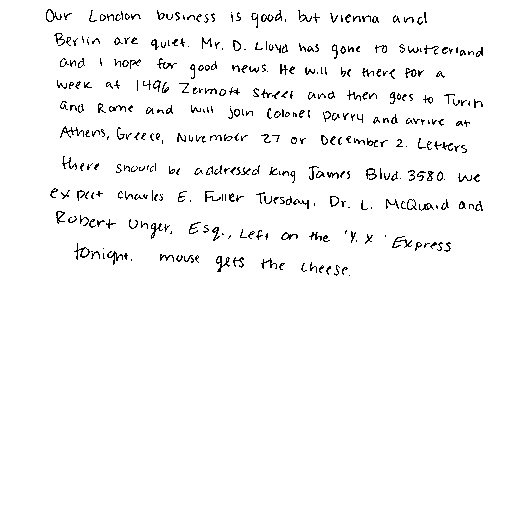 Our London business is good, but Vienna and
Berlin are quiet. Mr. D. Lloyd has gone to Switzerland
and I hope for good news. He will be there for a
week at 1496 Zermott Street and then goes to Turin
and Rome and will join Colonel Parry and arrive at
Athens, Greece, November 27 or December 2. Letters
there should be addressed King James Blvd. 3580. We
expect Charles E. Fuller Tuesday. Dr. L. McQuaid and
Robert Unger, Esq., Left on the 'Y. X' Express
tonight. mouse gets the cheese.